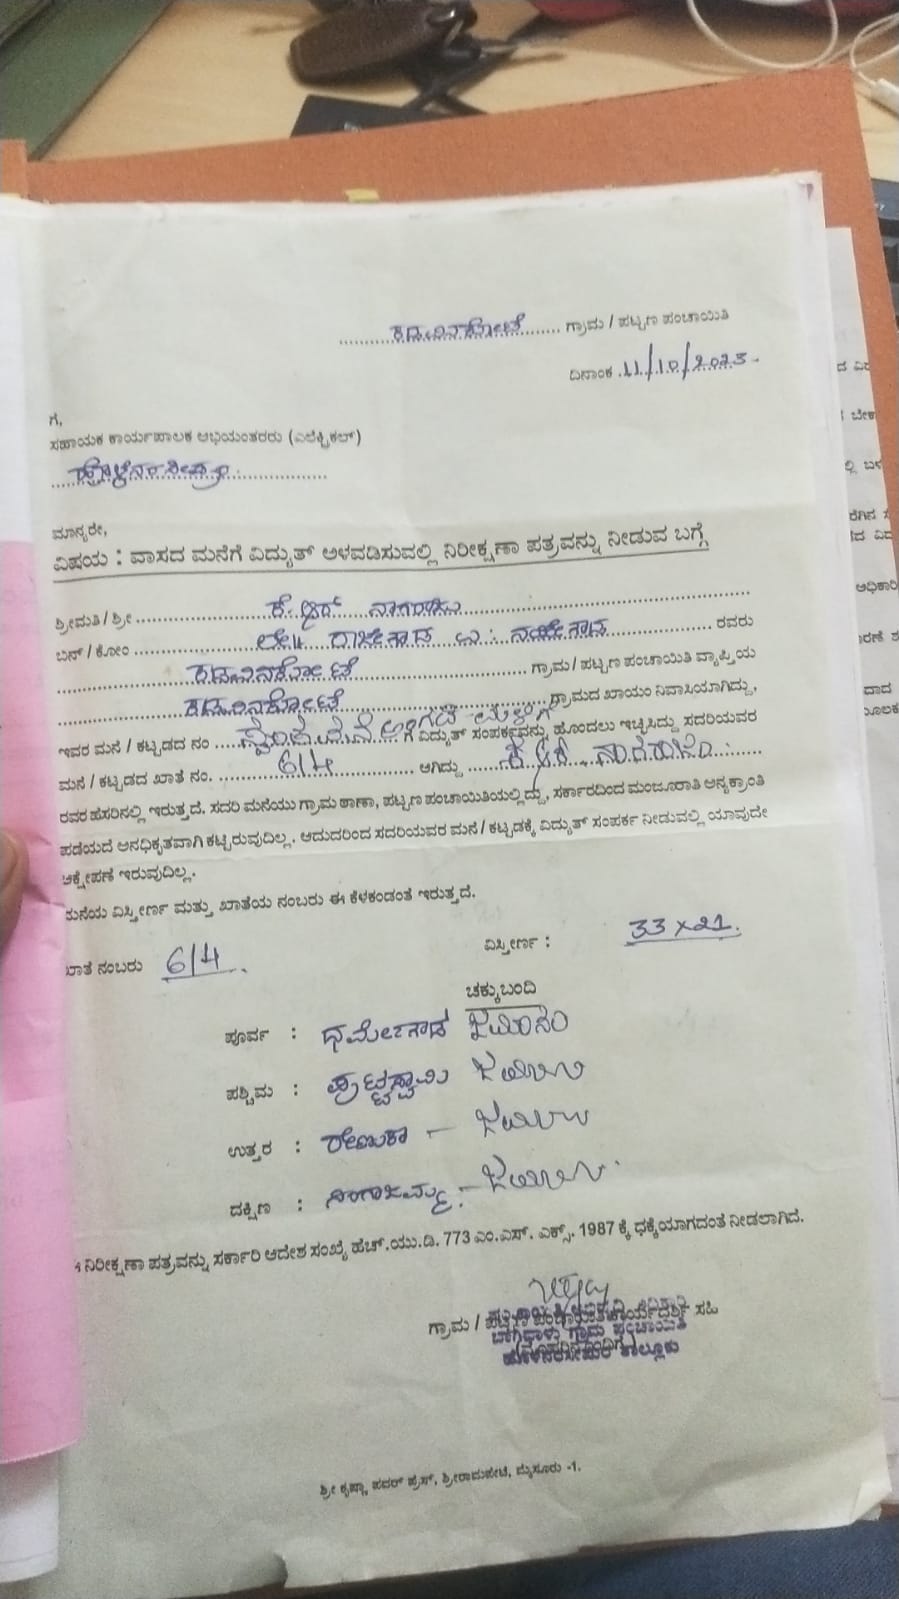 ಕಡುವಿನಕೋಟೆ ಗ್ರಾಮ / ಪಟ್ಟಣ ಪಂಚಾಯಿತಿ
ದಿನಾಂಕ 11/10/2023
ಗೆ,
ಸಹಾಯಕ ಕಾರ್ಯಪಾಲಕ ಅಭಿಯಂತರರು (ಎಲೆಕ್ಟ್ರಿಕಲ್)
ಹೊಳೆನರಸೀಪುರ
ಮಾನ್ಯರೇ,
ವಿಷಯ : ವಾಸದ ಮನೆಗೆ ವಿದ್ಯುತ್ ಅಳವಡಿಸುವಲ್ಲಿ ನಿರೀಕ್ಷಣಾ ಪತ್ರವನ್ನು ನೀಡುವ ಬಗ್ಗೆ
ಶ್ರೀಮತಿ / ಶ್ರೀ ಕೆ.ಆರ್ ನಾಗರಾಜು
ಬಿನ್ / ಕೋಂ ಲೇ|| ರಾಜೇಗೌಡ ರವರು
ಕಡುವಿನಕೋಟೆ ಗ್ರಾಮ / ಪಟ್ಟಣ ಪಂಚಾಯಿತಿ ವ್ಯಾಪ್ತಿಯ
ಕಡುವಿನಕೋಟೆ ಗ್ರಾಮದ ಖಾಯಂ ನಿವಾಸಿಯಾಗಿದ್ದು,
ಇವರ ಮನೆ / ಕಟ್ಟಡದ ನಂ ಅಂಗಡಿ ಮಳಿಗೆ ಗೆ ವಿದ್ಯುತ್ ಸಂಪರ್ಕವನ್ನು ಹೊಂದಲು ಇಚ್ಛಿಸಿದ್ದು ಸದರಿಯವರ
ಮನೆ / ಕಟ್ಟಡದ ಖಾತೆ ನಂ. 6/4 ಆಗಿದ್ದು ಕೆ.ಆರ್. ನಾಗರಾಜು
ರವರ ಹೆಸರಿನಲ್ಲಿ ಇರುತ್ತದೆ. ಸದರಿ ಮನೆಯು ಗ್ರಾಮ ಠಾಣಾ, ಪಟ್ಟಣ ಪಂಚಾಯಿತಿಯಲ್ಲಿದ್ದು, ಸರ್ಕಾರದಿಂದ ಮಂಜೂರಾತಿ ಅನ್ಯಕ್ರಾಂತಿ
ಪಡೆಯದೆ ಅನಧಿಕೃತವಾಗಿ ಕಟ್ಟಿರುವುದಿಲ್ಲ. ಆದುದರಿಂದ ಸದರಿಯವರ ಮನೆ / ಕಟ್ಟಡಕ್ಕೆ ವಿದ್ಯುತ್ ಸಂಪರ್ಕ ನೀಡುವಲ್ಲಿ ಯಾವುದೇ
ಆಕ್ಷೇಪಣೆ ಇರುವುದಿಲ್ಲ.
ಮನೆಯ ವಿಸ್ತೀರ್ಣ ಮತ್ತು ಖಾತೆಯ ನಂಬರು ಈ ಕೆಳಕಂಡಂತೆ ಇರುತ್ತದೆ.
ಖಾತೆ ನಂಬರು 6/4 ವಿಸ್ತೀರ್ಣ : 33 x 21
ಚಕ್ಕುಬಂದಿ
ಪೂರ್ವ : ಧರ್ಮೇಗೌಡ ಜಮೀನು
ಪಶ್ಚಿಮ : ಪುಟ್ಟಸ್ವಾಮಿ ಜಮೀನು
ಉತ್ತರ : ರೇಣುಕಾ – ಜಮೀನು
ದಕ್ಷಿಣ : – ಜಮೀನು
ಈ ನಿರೀಕ್ಷಣಾ ಪತ್ರವನ್ನು ಸರ್ಕಾರಿ ಆದೇಶ ಸಂಖ್ಯೆ ಹೆಚ್.ಯು.ಡಿ. 773 ಎಂ.ಎಸ್. ಎಕ್ಸ್. 1987 ಕ್ಕೆ ಧಕ್ಕೆಯಾಗದಂತೆ ನೀಡಲಾಗಿದೆ.
ಗ್ರಾಮ / ಪಟ್ಟಣ ಪಂಚಾಯಿತಿ ಕಾರ್ಯದರ್ಶಿ ಸಹಿ
ಗ್ರಾಮ ಪಂಚಾಯಿತಿ
ಹೊಳೆನರಸೀಪುರ ತಾಲ್ಲೂಕು
ಶ್ರೀ ಕೃಷ್ಣಾ ಪವರ್ ಪ್ರೆಸ್, ಶ್ರೀರಾಮಪೇಟೆ, ಮೈಸೂರು -1.